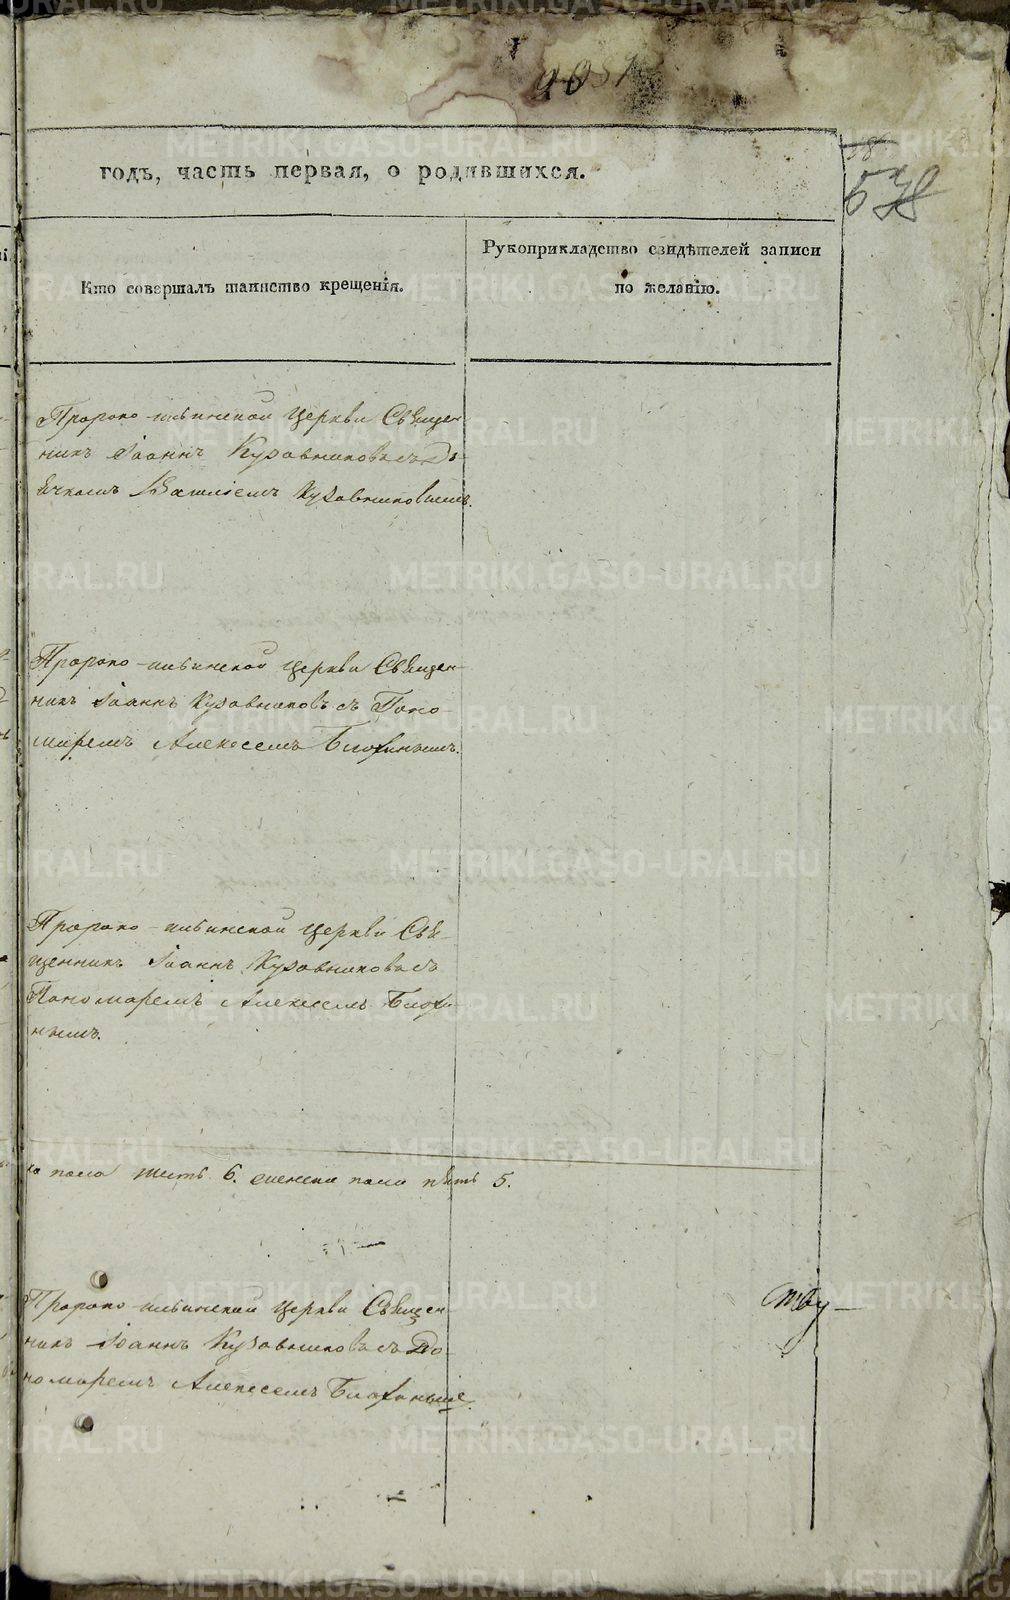 годъ, часть первая, о родившихся.
Кто совершалъ таинство крещенія.
Рукоприкладство свидѣтелей записи
по желанію.
Пророко-ильинской церкви Священ
никъ Іоаннъ Кузовниковъ съ Дь
ячкомъ Василіемъ Кузовниковымъ.
Пророко-ильинской церкви Священ-
никъ Іоаннъ Кузовниковъ съ Поно-
маремъ Алексеемъ Блохинымъ.
Пророко-ильинской церкви Свя-
щенникъ Іоаннъ Кузовниковъ съ
Пономаремъ Алексеемъ Блохи-
нымъ.
пола шесть 6. женска пола пять 5.
Пророко-ильинской церкви Священ
никъ Іоаннъ Кузовниковъ съ По
номаремъ Алексеемъ Блохинымъ.
METRIKI.GASO-URAL.RU